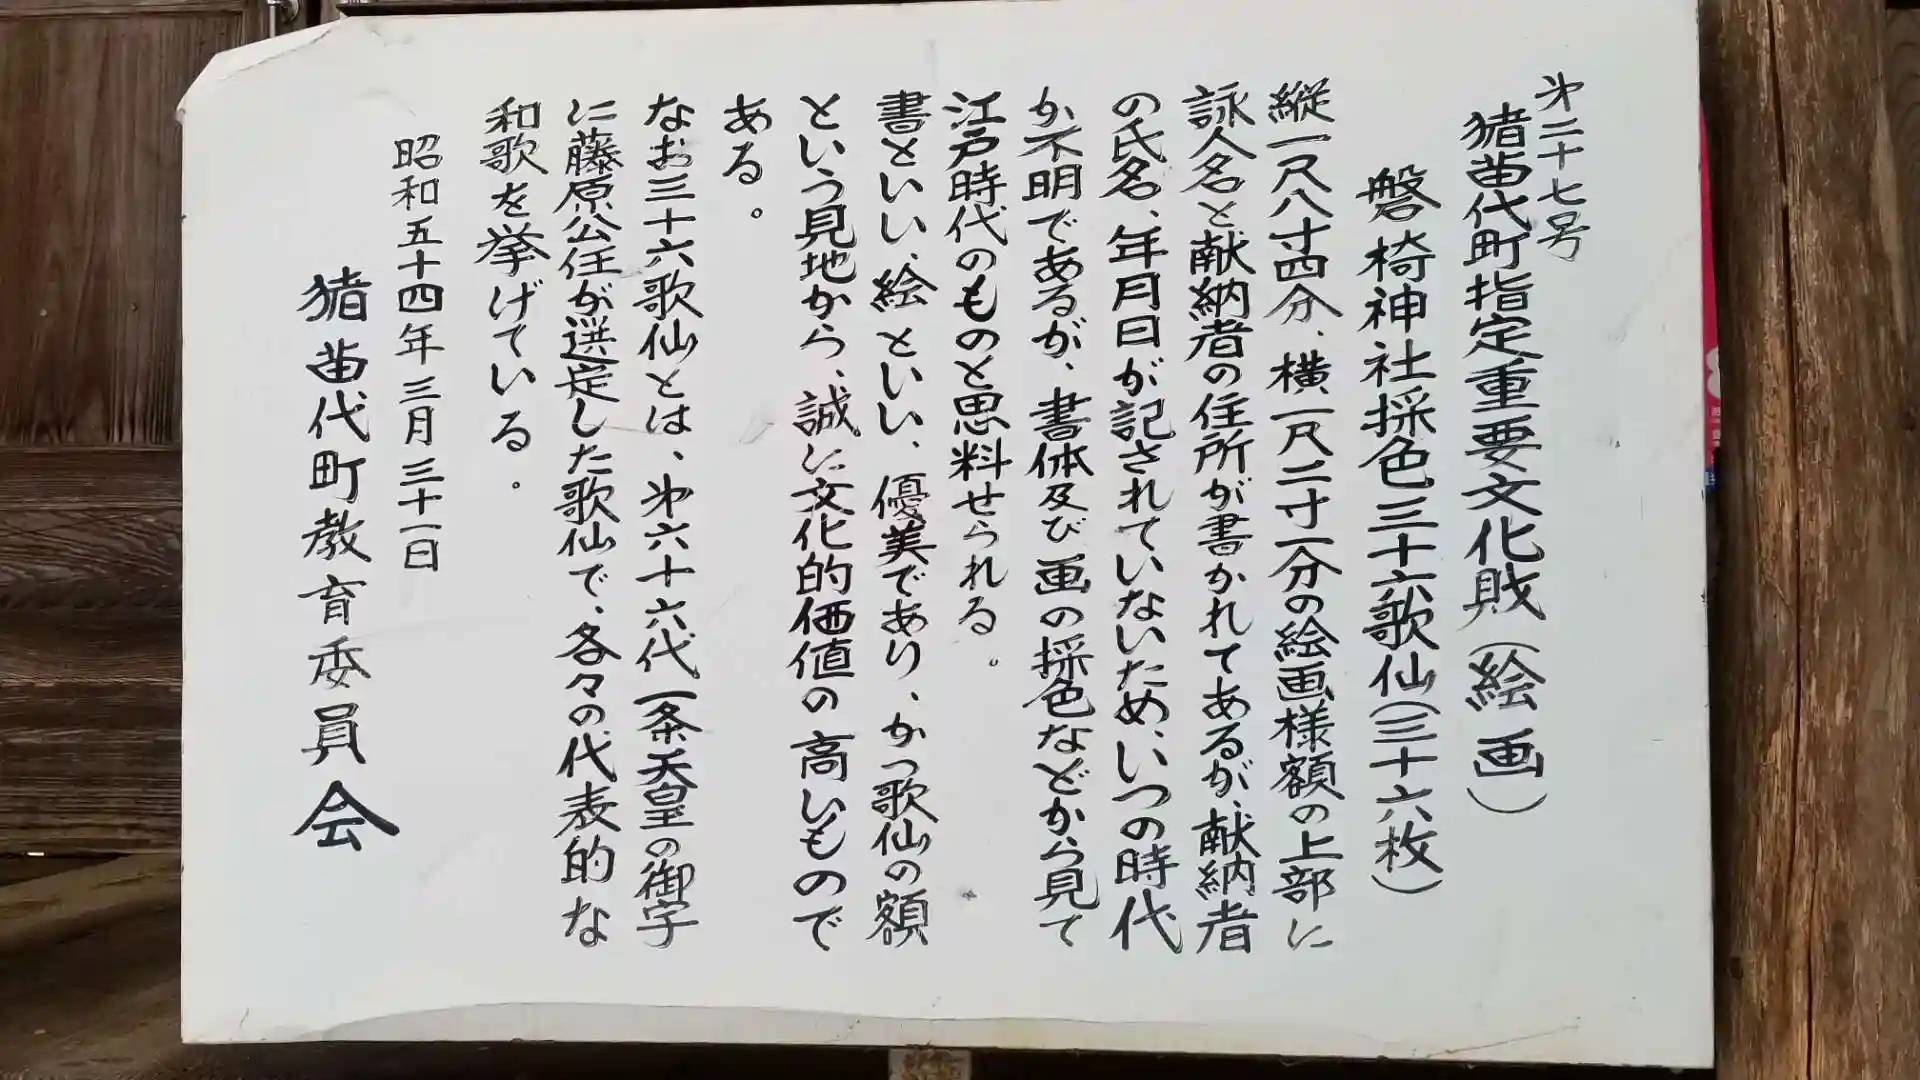 㐧二十七号
猪苗代町指定重要文化財（絵画）
磐椅神社採色三十六歌仙（三十六枚）
縦一尺八寸四分、横一尺二寸一分の絵画様額の上部に
詠人名と献納者の住所が書かれてあるが、献納者
の氏名、年月日が記されていないため、いつの時代
か不明であるが、書体及び画の採色などから見て
江戸時代のものと思料せられる。
書といい、絵といい、優美であり、かつ歌仙の額
という見地から、誠に文化的価値の高いもので
ある。
なお三十六歌仙とは、㐧六十六代一条天皇の御宇
に藤原公任が選定した歌仙で、各々の代表的な
和歌を挙げている。
昭和五十四年三月三十一日
猪苗代町教育委員会